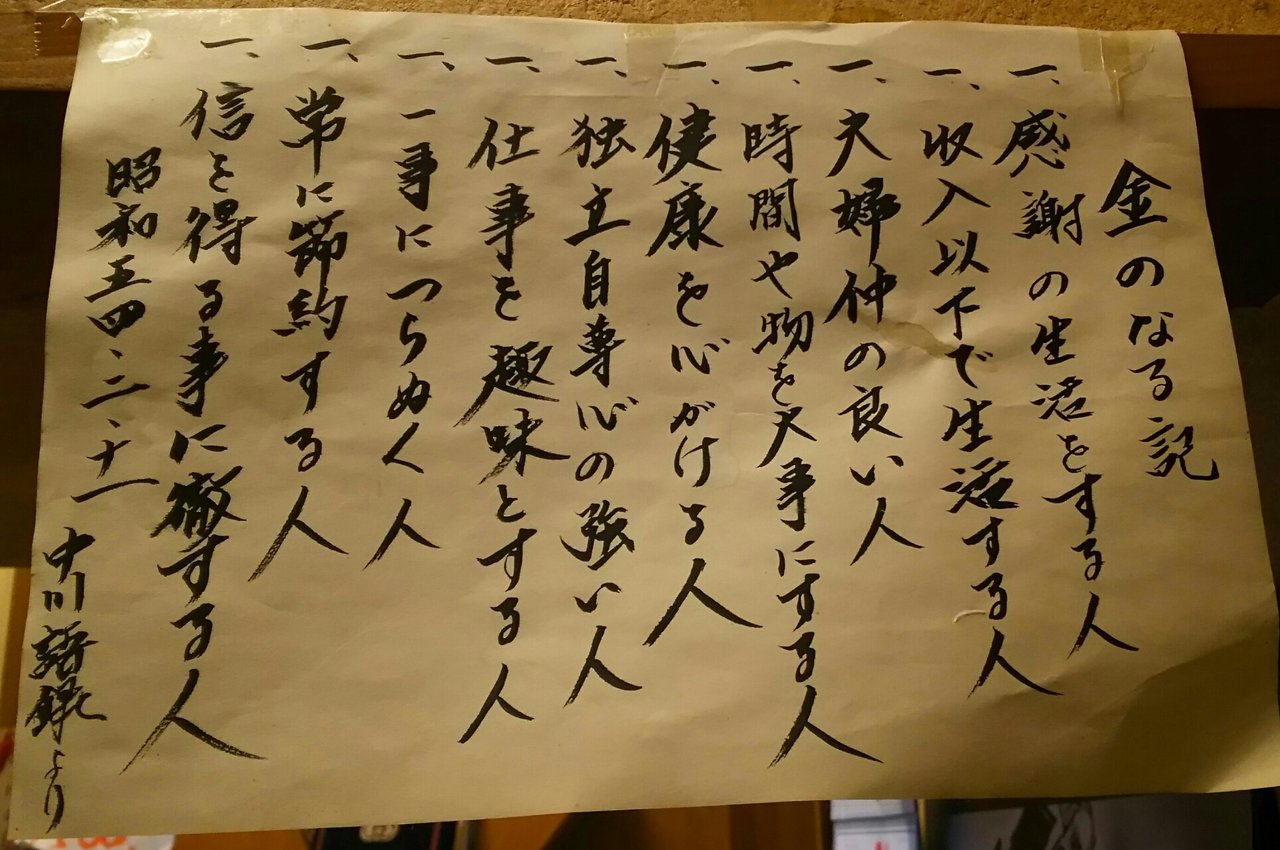 金のなる記
一、感謝の生活をする人
一、収入以下で生活する人
一、夫婦仲の良い人
一、時間や物を大事にする人
一、健康を心がける人
一、独立自尊心の強い人
一、仕事を趣味とする人
一、一事につらぬく人
一、常に節約する人
一、信を得る事に徹する人
昭和五四、二、十一
中川語録より